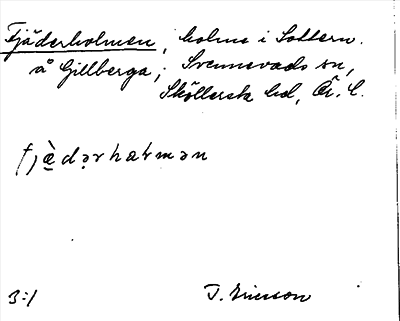 Fjäderholmen, holme i Sottern.
å Gillberga, Svennevads sn,
Sköllersta hd, Ör. l.
fjæ̀dərhaɫmən
3:1
T. Ericsson